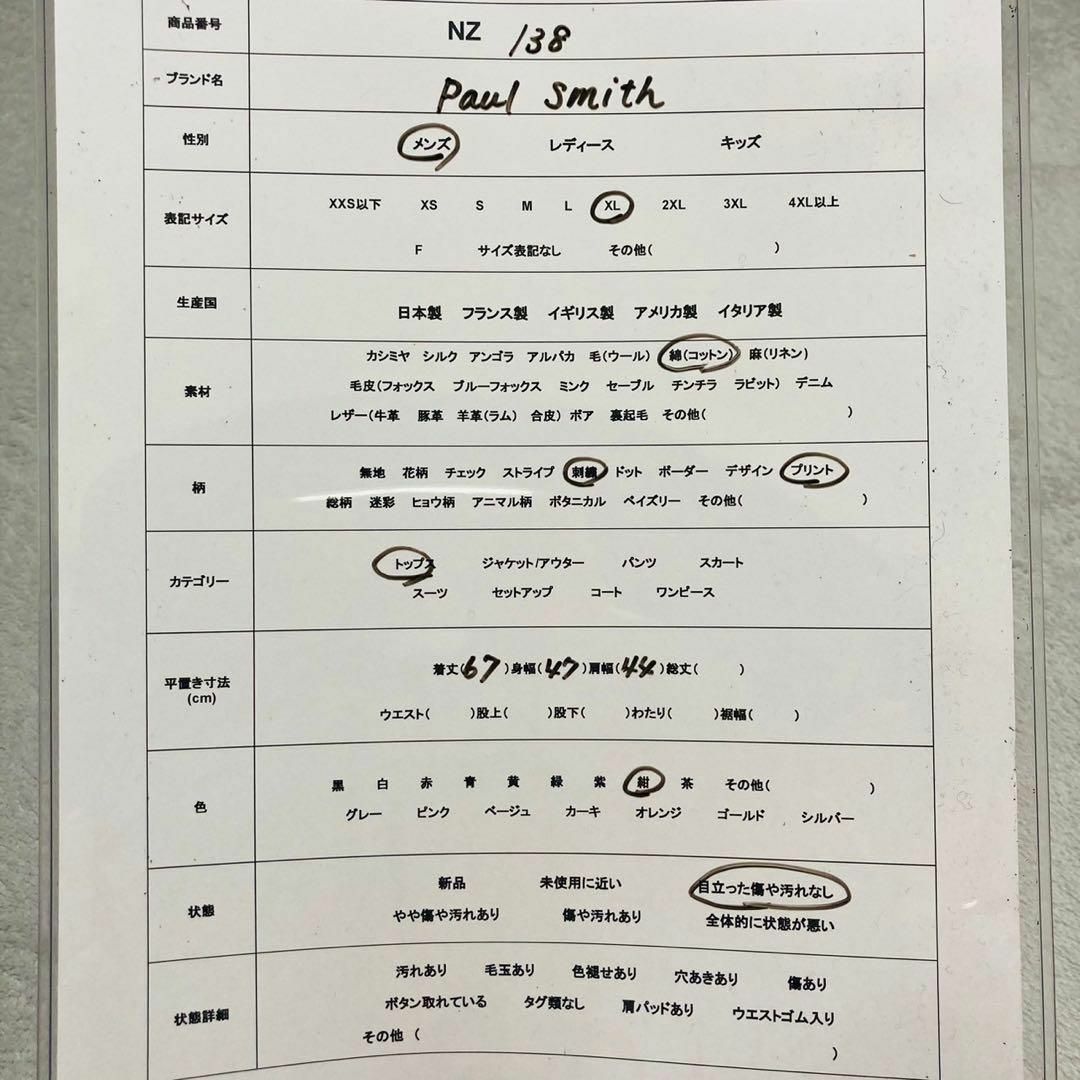 商品番号 NZ 138
ブランド名 Paul Smith
性別 メンズ レディース キッズ
表記サイズ XXS以下 XS S M L XL 2XL 3XL 4XL以上
F サイズ表記なし その他( )
生産国 日本製 フランス製 イギリス製 アメリカ製 イタリア製
カシミヤ シルク アンゴラ アルパカ 毛(ウール) 綿(コットン) 麻(リネン)
素材 毛皮(フォックス ブルーフォックス ミンク セーブル チンチラ ラビット) デニム
レザー(牛革 豚革 羊革(ラム) 合皮) ボア 裏起毛 その他( )
無地 花柄 チェック ストライプ 刺繍 ドット ボーダー デザイン プリント
柄
総柄 迷彩 ヒョウ柄 アニマル柄 ボタニカル ペイズリー その他( )
トップス ジャケット/アウター パンツ スカート
カテゴリー
スーツ セットアップ コート ワンピース
着丈(67)身幅(47)肩幅(44)総丈( )
平置き寸法
(cm)
ウエスト( )股上( )股下( )わたり( )裾幅( )
黒 白 赤 青 黄 緑 紫 紺 茶 その他( )
色
グレー ピンク ベージュ カーキ オレンジ ゴールド シルバー
新品 未使用に近い 目立った傷や汚れなし
状態
やや傷や汚れあり 傷や汚れあり 全体的に状態が悪い
汚れあり 毛玉あり 色褪せあり 穴あきあり 傷あり
状態詳細 ボタン取れている タグ類なし 肩パッドあり ウエストゴム入り
その他 ( )